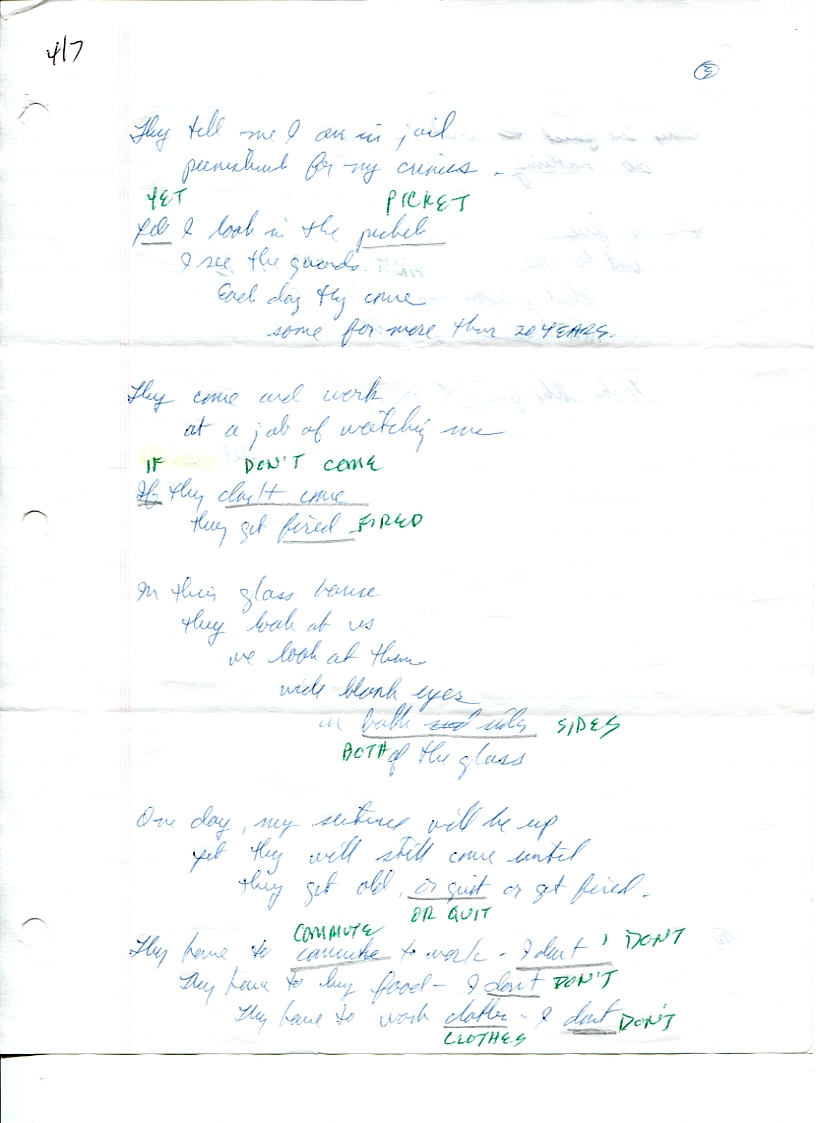 4/7
3
They tell me I am in jail
punishment for my crimes -
YET PICKET
yet I look in the picket
I see the guards.
Each day they come
some for more than 20 YEARS.
They come and work
at a job of watching me
IF DON'T COME
If they don't come
they get fired FIRED
In this glass house
they look at us
we look at them
wide blank eyes
in both sides SIDES
BOTH of the glass
One day, my sentence will be up
yet they will still come until
they get old, or quit or get fired.
OR QUIT
COMMUTE
They have to commute to work - I don't I DON'T
They have to buy food - I don't DON'T
They have to wash clothes - I dont DON'T
CLOTHES